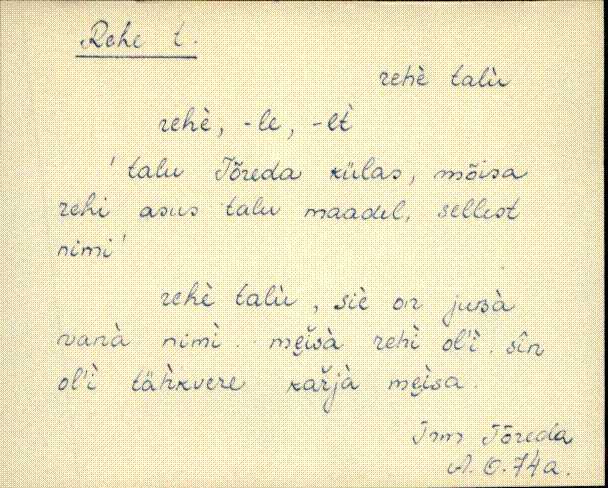 Rehe t.
rehè talù
rehè, -le, -lt̀
' talu Tõreda külas, mõisa
rehi asus talu maadel, sellest
nimi '
rehè talù, siè on jussà
vanà nimì. mẹĭsà rehì ol'ì. sîn
ol'ì tähkvere kařjà mẹĭsa.
Jmm Tõreda
A.O.74a.